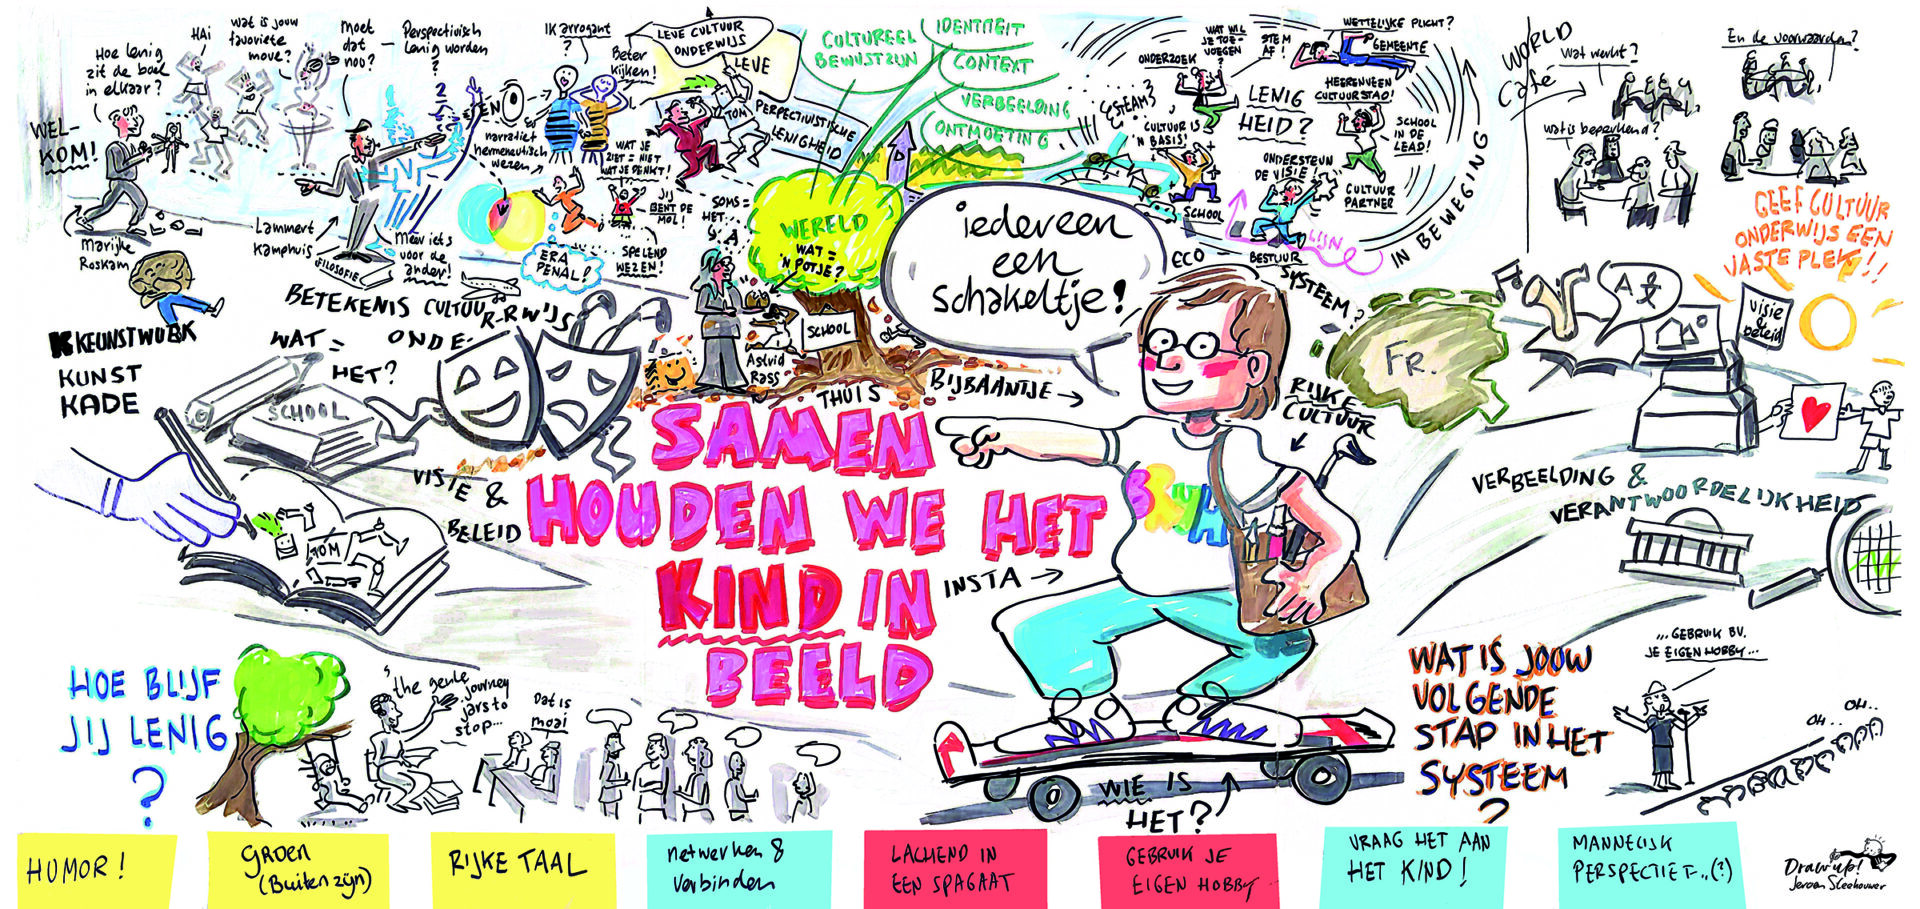 WEL-
KOM!
Hoe lenig
zit de boel
in elkaar?
HAi
wat is jouw
favoriete
move?
Moet
dat
nou?
Perspectivisch
lenig worden
?
Marijke
Roskam
Lammert
Kamphuis
FILOSOFIE
Meer iets
voor de
ander!
narratief
hermeneutisch
wezen
IK arrogant
?
Beter
kijken!
WAT JE
ZIET = NIET
WAT JE DENKT!
JIJ
BENT DE
MOL!
SPELEND
WEZEN!
ERA
PENAL!
LEVE CULTUUR
ONDERWIJS
LEVE
TOM
PERPECTIVISTISCHE
LENIGHEID
SOMS =
HET..
CULTUREEL
BEWUSTZIJN
IDENTITEIT
CONTEXT
VERBEELDING
ONTMOETING
WERELD
WAT =
'N POTJE?
SCHOOL
Astrid
Rass
THUIS
iedereen
een
schakeltje!
STEAM?
ONDERZOEK
WAT WIL
JE TOE-
VOEGEN
?
STEM
AF!
WETTELIJKE PLICHT?
GEMEENTE
HEERENVEEN
CULTUURSTAD!
LENIG
HEID?
CULTUUR IS
'N BASIS!
SCHOOL
IN DE
LEAD!
ONDERSTEUN
DE VISIE!
CULTUUR
PARTNER
SCHOOL
BESTUUR
LIJN
ECO
SYSTEEM?
IN BEWEGING
WORLD
Cafe
Wat werkt?
En de voorwaarden?
wat is beperkend?
GEEF CULTUUR
ONDERWIJS EEN
VASTE PLEK!!
KKEUNSTWURK
KUNST
KADE
BETEKENIS CULTUU R-RWIJS
ONDE-
WAT =
HET?
SCHOOL
VISIE &
BELEID
TOM
SAMEN
HOUDEN WE HET
KIND IN
BEELD
BIJBAANTJE →
INSTA →
BRUH
RIJKE
CULTUUR
FR.
visie
&
beleid
VERBEELDING &
VERANTWOORDELIJKHEID
HOE BLIJF
JIJ LENIG
?
the genle
journey
jars to
stop...
Dat is
mooi
WIE IS
HET?
WAT IS JOUW
VOLGENDE
STAP IN HET
SYSTEEM
?
... GEBRUIK BV.
JE EIGEN HOBBY...
OH..
OH..
HUMOR!
GROEN
(Buiten zijn)
RIJKE TAAL
netwerken &
verbinden
LACHEND IN
EEN SPAGAAT
GEBRUIK JE
EIGEN HOBBY
VRAAG HET AAN
HET KIND!
MANNELIJK
PERSPECTIEF..(?)
Drawup!
Jeroen Sleehouwer